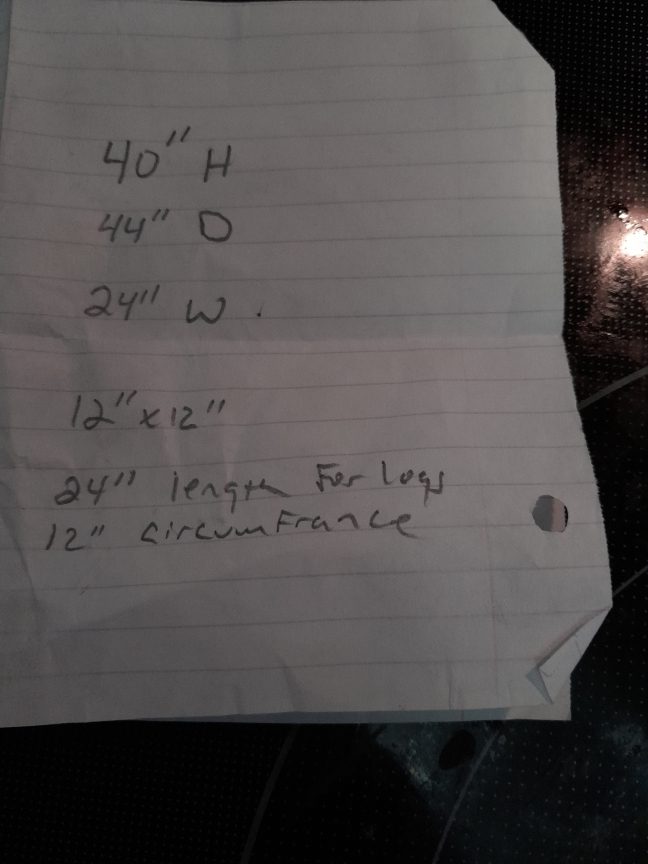 40" H
44" D
24" W .
12" x 12"
24" length For Logs
12" circumFrance